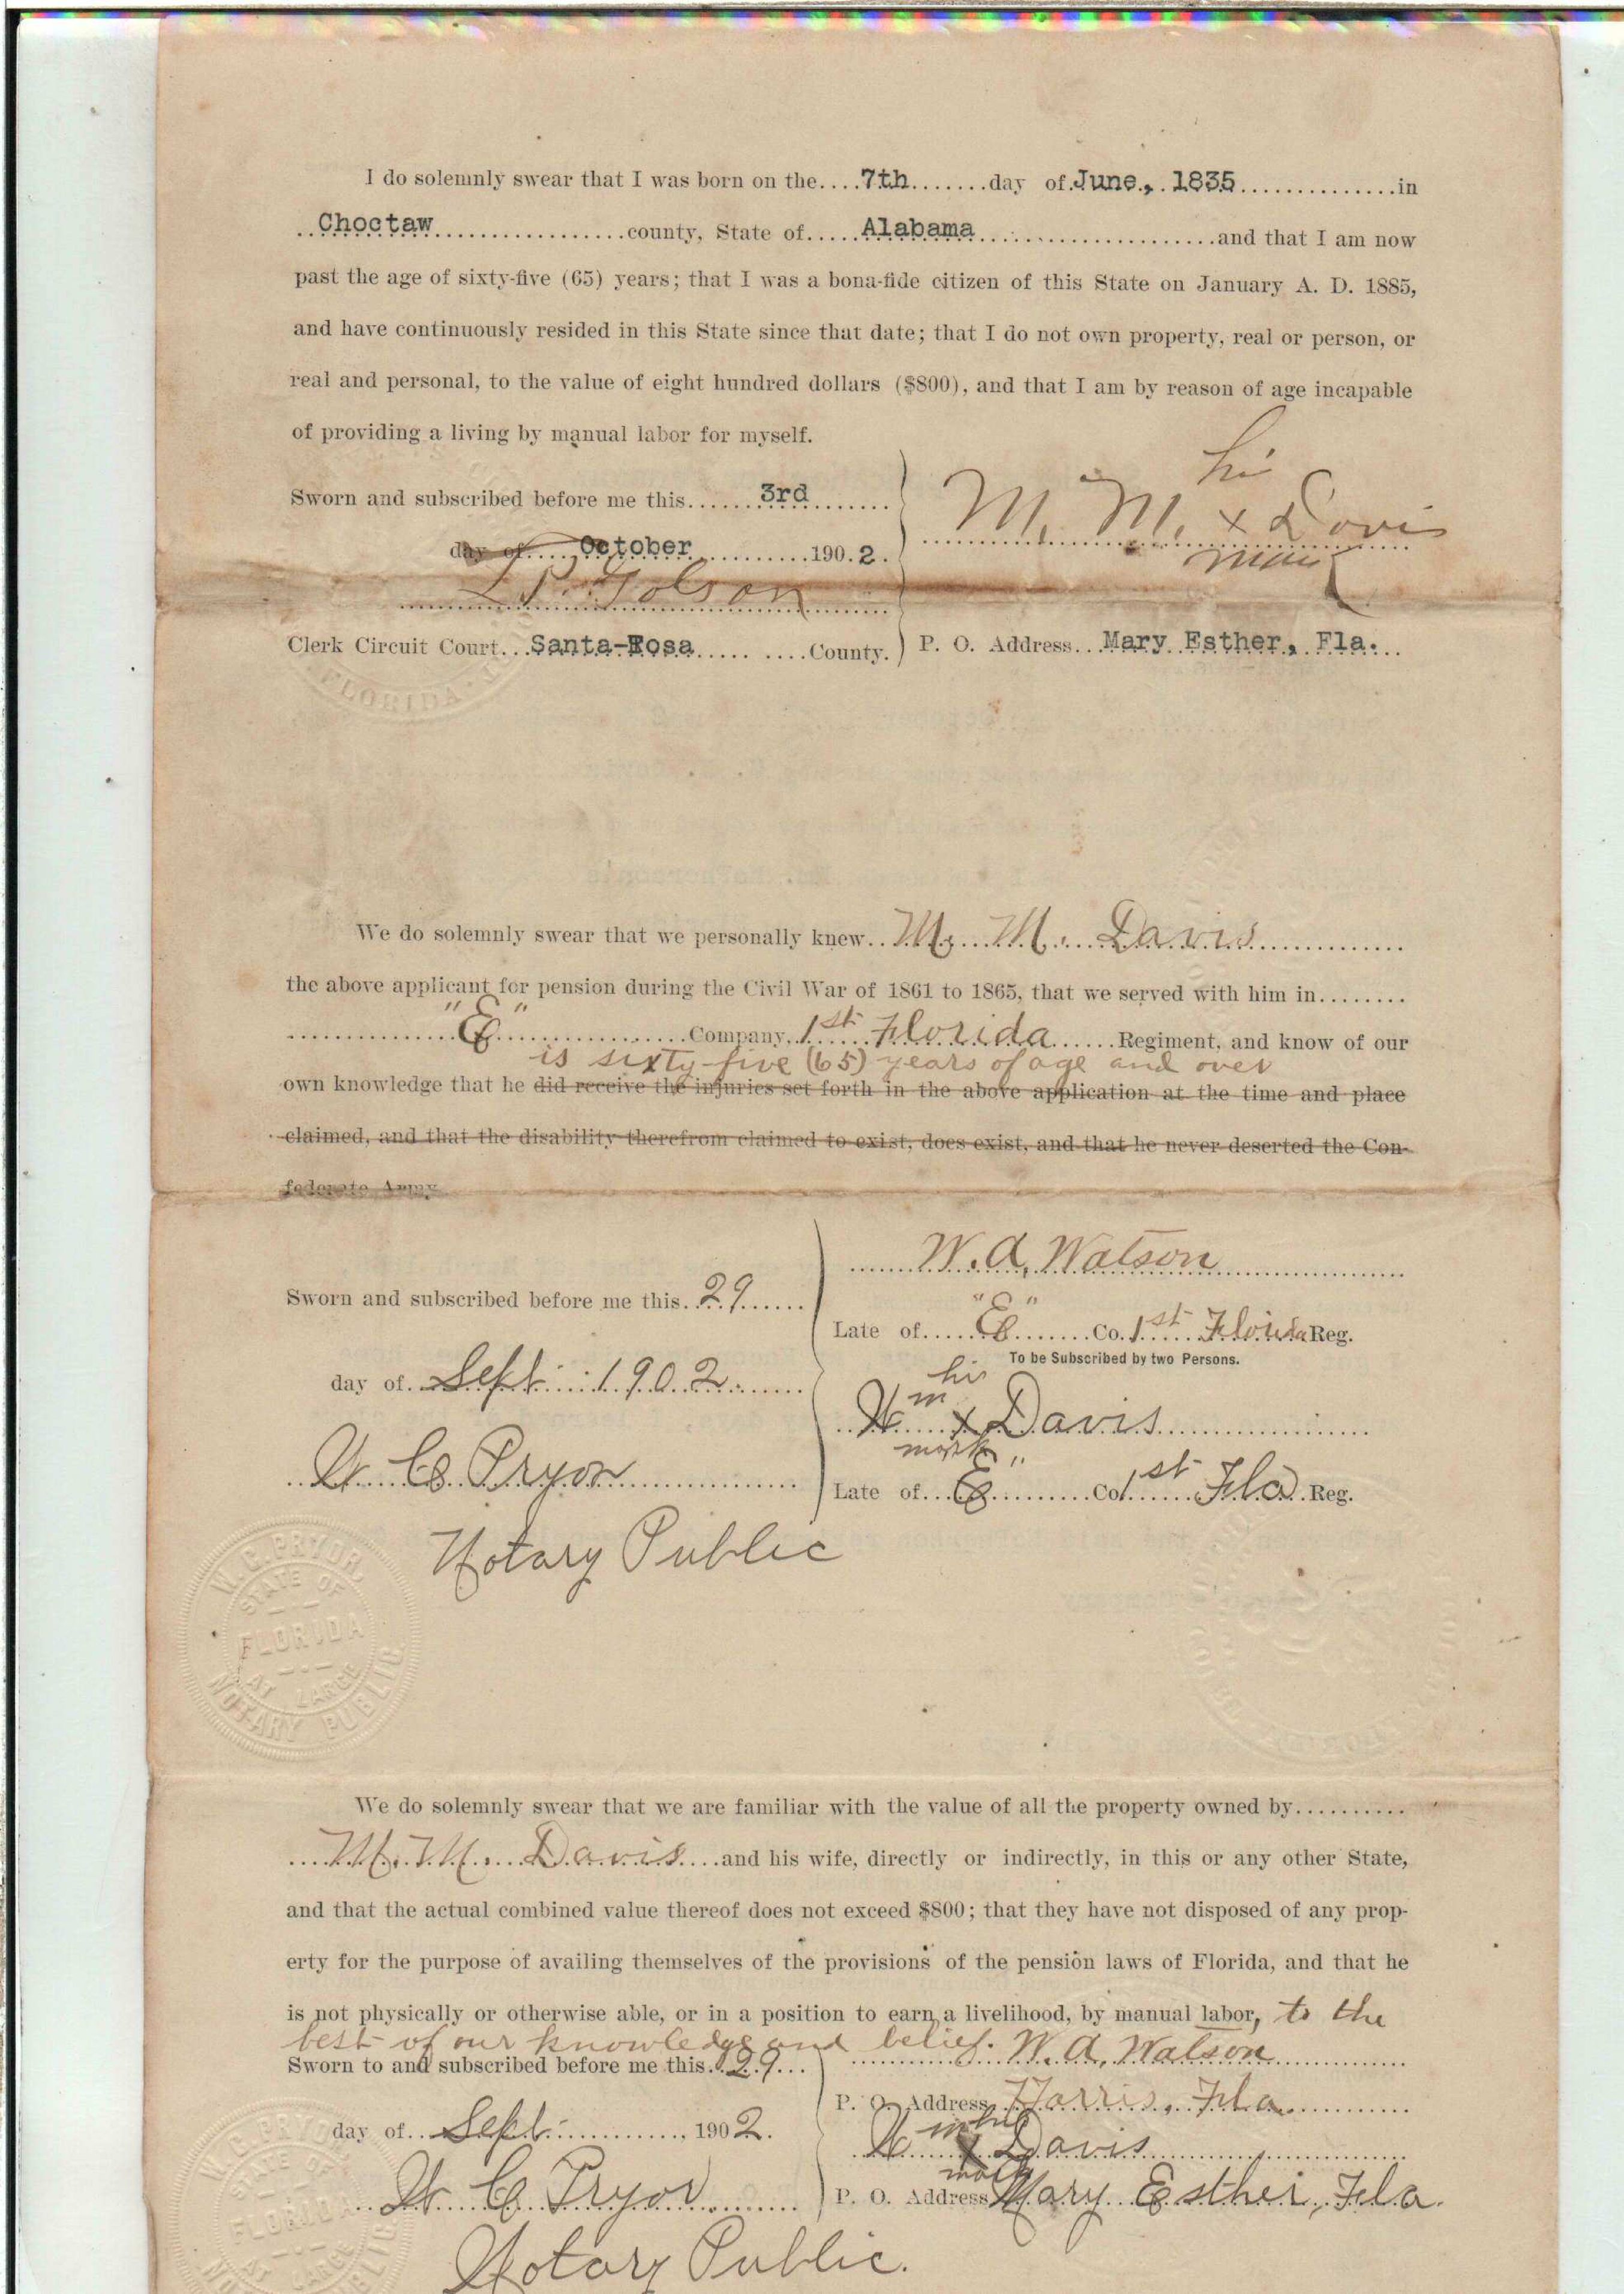 I do solemnly swear that I was born on the....7th.......day of June., 1835..............in
Choctaw..................county, State of.....Alabama......................and that I am now
past the age of sixty-five (65) years; that I was a bona-fide citizen of this State on January A. D. 1885,
and have continuously resided in this State since that date; that I do not own property, real or person, or
real and personal, to the value of eight hundred dollars ($800), and that I am by reason of age incapable
of providing a living by manual labor for myself.
his
Sworn and subscribed before me this......3rd........
M. M. x Davis
day of....October...........190.2.
mark
Clerk Circuit Court...Santa-Rosa..... ....County.
P. O. Address...Mary Esther, Fla...
FLORIDA
We do solemnly swear that we personally knew..M. M. Davis..............
the above applicant for pension during the Civil War of 1861 to 1865, that we served with him in........
"E"................Company, 1st Florida......Regiment, and know of our
is sixty-five (65) years of age and over
own knowledge that he did receive the injuries set forth in the above application at the time and place
claimed, and that the disability therefrom claimed to exist, does exist, and that he never deserted the Con-
federate Army
W. A. Watson
Sworn and subscribed before me this..29......
Late of....."E".......Co. 1st Florida Reg.
To be Subscribed by two Persons.
day of..Sept 1902.......
his
Wm x Davis
mark
W C Pryor
Late of..."E".........Co 1st Fla Reg.
Notary Public
W. C. PRYOR,
STATE OF
FLORIDA
AT LARGE
NOTARY PUBLIC
We do solemnly swear that we are familiar with the value of all the property owned by..........
M. M. Davis....and his wife, directly or indirectly, in this or any other State,
and that the actual combined value thereof does not exceed $800; that they have not disposed of any prop-
erty for the purpose of availing themselves of the provisions of the pension laws of Florida, and that he
is not physically or otherwise able, or in a position to earn a livelihood, by manual labor, to the
best of our knowledge and belief.
W. A. Watson
Sworn to and subscribed before me this..29...
P. O. Address Harris, Fla.
day of..Sept............, 1902.
his
Wm x Davis
mark
W C Pryor
P. O. Address Mary Esther, Fla.
Notary Public.
W. C. PRYOR
STATE OF
FLORIDA
AT LARGE